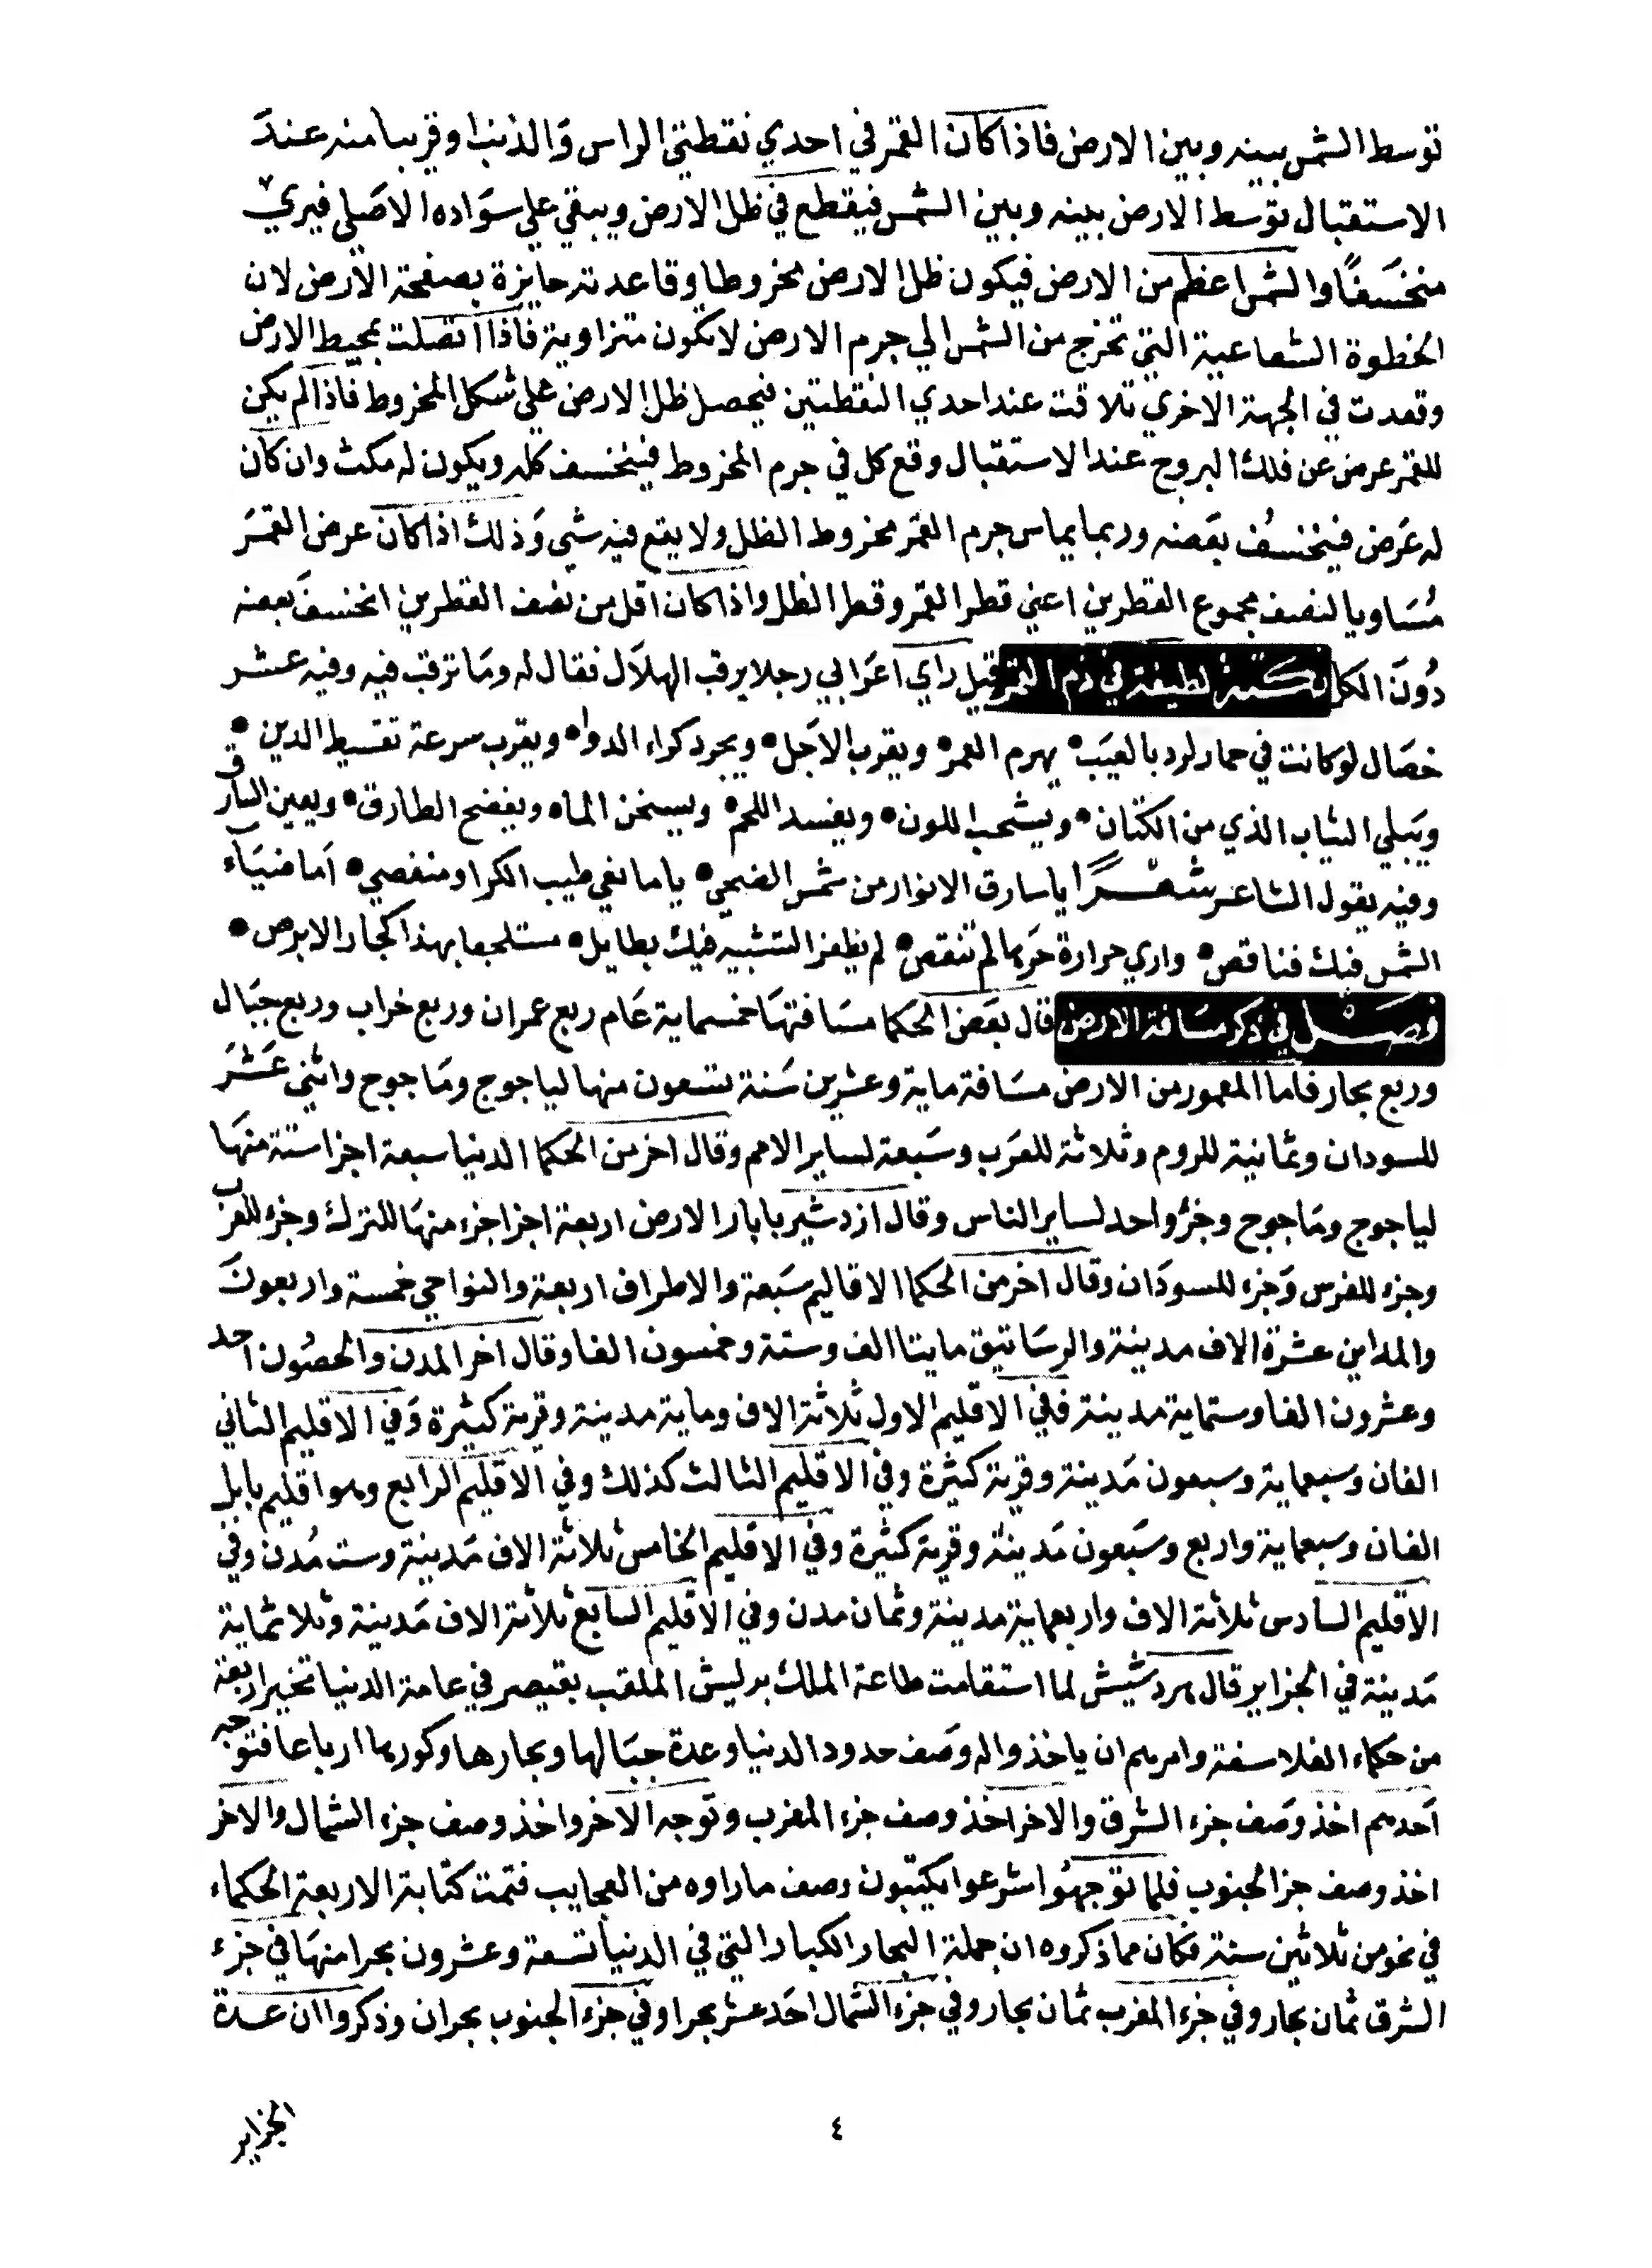 توسط الشمس بينه وبين الارض فاذا كان القمر في احدي نقطتي الراس والذنب او قريبا منه عند
الاستقبال توسط الارض بينه وبين الشمس فيقطع في ظل الارض ويبقي علي سواده الاصلي فيري
منخسفًا والشمس اعظم من الارض فيكون ظل الارض مخروطا وقاعدته حايزة بصفحة الارض لان
الخطوة الشعاعية التي تخرج من الشمس الي جرم الارض لا تكون متزاوية فاذا اتصلت بمحيط الارض
وقعدت في الجهة الاخري تلاقت عند احدي النقطتين فيحصل ظل الارض علي شكل المخروط فاذا لم يكن
للقمر عرض عن فلك البروج عند الاستقبال وقع كل في جرم المخروط فينخسف كله ويكون له مكث وان كان
له عَرض فينخسُف بعضه وربما يماس جرم القمر مخروط الظل ولا يقع فيه شي وذلك اذا كان عرض القمَر
مُسَاويا لنصف مجموع القطرين اعني قطر القمر وقطر الظل واذا كان اقل من نصف القطرين انخسفَ بعضه
دُونَ الكل نكتة لطيفة في ذم القمر قيل راي اعَرابي رجلا يرقب الهلاَل فقال له ومَا ترقب فيه وفيه عشر
خصَال لو كانت في حمار لرد بالعيَب • يهرم العمر • ويقرب الاجَل • ويجرد كراء الدواه • ويقرب سرعة تقسيط الدين •
ويَبلي الثياب الذي من الكتان • ويشحب اللون • ويفسد اللحم • ويسخن الماه ويفضح الطارق • ويعين السارق
وفيه يقول الشاعر شعرًا يا سارق الانوار من شمس الضحي • يا ما نغي طيب الكرا ومنغصي • اَما ضيَاء
الشمس فيك فناقص • واري حرارة حَرها لم تنقص • لم يظفر التشبيه فيك بطايل • مستلحما بهذا كجار الابرص •
فصل في ذكر مسافة الارض قال بعَض الحكما مسَافتهَا خمسماية عَام ربع عمران وربع خراب وربع جبَال
وربع بحار فاما المعمور من الارض مسَافة ماية وعشرين سَنة تسعون منها لياجوج ومَاجوج واثني عَشَر
للسودان وثمانية للروم وثلاثة للعَرب وسَبعة لساير الامم وقال اخر من الحكما الدنيا سبعة اجزا ستة منهَا
لياجوج ومَاجوج وجزؤ واحد لساير الناس وقال ازدشير بابار الارض اربعة اجزا جزء منهَا للترك وجزء للعرب
وجزء للفرس وَجزء للسودَان وقال اخر من الحكما الاقاليم سَبعة والاطراف اربعة والنواحي خمسة واربعونَ
والمداين عشرة الاف مدينة والرسَاتيق مايتا الف وستة وخمسون الفا وقال اخر المدن والحصُون احد
وعشرون الفا وستماية مدينة ففي الاقليم الاول ثلاثة الاف وماية مدينة وقرية كثيرة وَفي الاقليم الثاني
الفان وسبعماية وسبعون مَدينة وقرية كثيرة وفي الاقليم الثالث كذلك وفي الاقليم الرابع وهو اقليم بابل
الفان وسبعماية واربع وسَبعون مَدينة وقرية كثيرة وفي الاقليم الخامس ثلاثة الاف مَدينة وست مُدن وفي
الاقليم السادس ثلاثة الاف واربعماية مدينة وثمان مدن وفي الاقليم السابع ثلاثة الاف مَدينة وثلاثماية
مَدينة في الجزاير قال هردشيش لما استقامت طاعة الملك بوليش الملقب بقيصر في عامة الدنيا تخير اربعة
من حكماء الفلاسفة وامرهم ان ياخذوا له وصَف حدود الدنيا وعدة جبَالها وبحارها وكورها ارباعا فتوجه
اَحدهم اخذ وصَف جزء الشرق والاخر اخذ وصف جزء المغرب وتوجه الاخر واخذ وصف جزء الشمال والاخر
اخذ وصف جز الجنوب فلما توجهُوا شرعوا يكتبون وصف ما راوه من العجايب فتمت كتابة الاربعة الحكماء
في نحو من ثلاثين سنة فكان مما ذكروه ان جملة البحار الكبار التي في الدنيا تسعة وعشرون بحرا منهَا في جزء
الشرق ثمان بحار وفي جزء المغرب ثمان بحار وفي جزء الشمال احَد عشر بحرا وفي جزء الجنوب بحران وذكروا ان عدة
الجزاير
٤